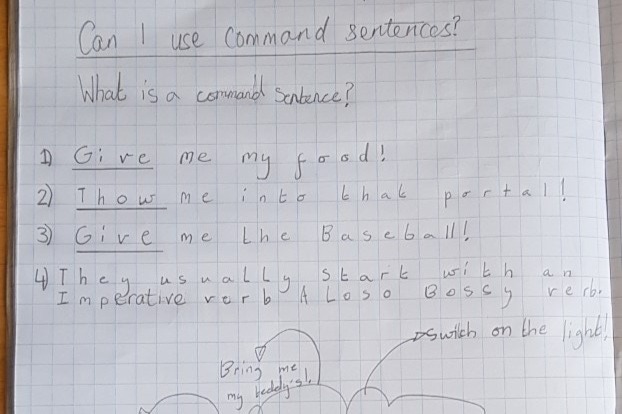 Can I use command sentences?
What is a command sentence?
1) Give me my food!
2) Thow me into that portal!
3) Give me the Baseball!
4) They usually start with an
Imperative verb A Loso Bossy verb.
switch on the light!
Bring me
my teddy's!